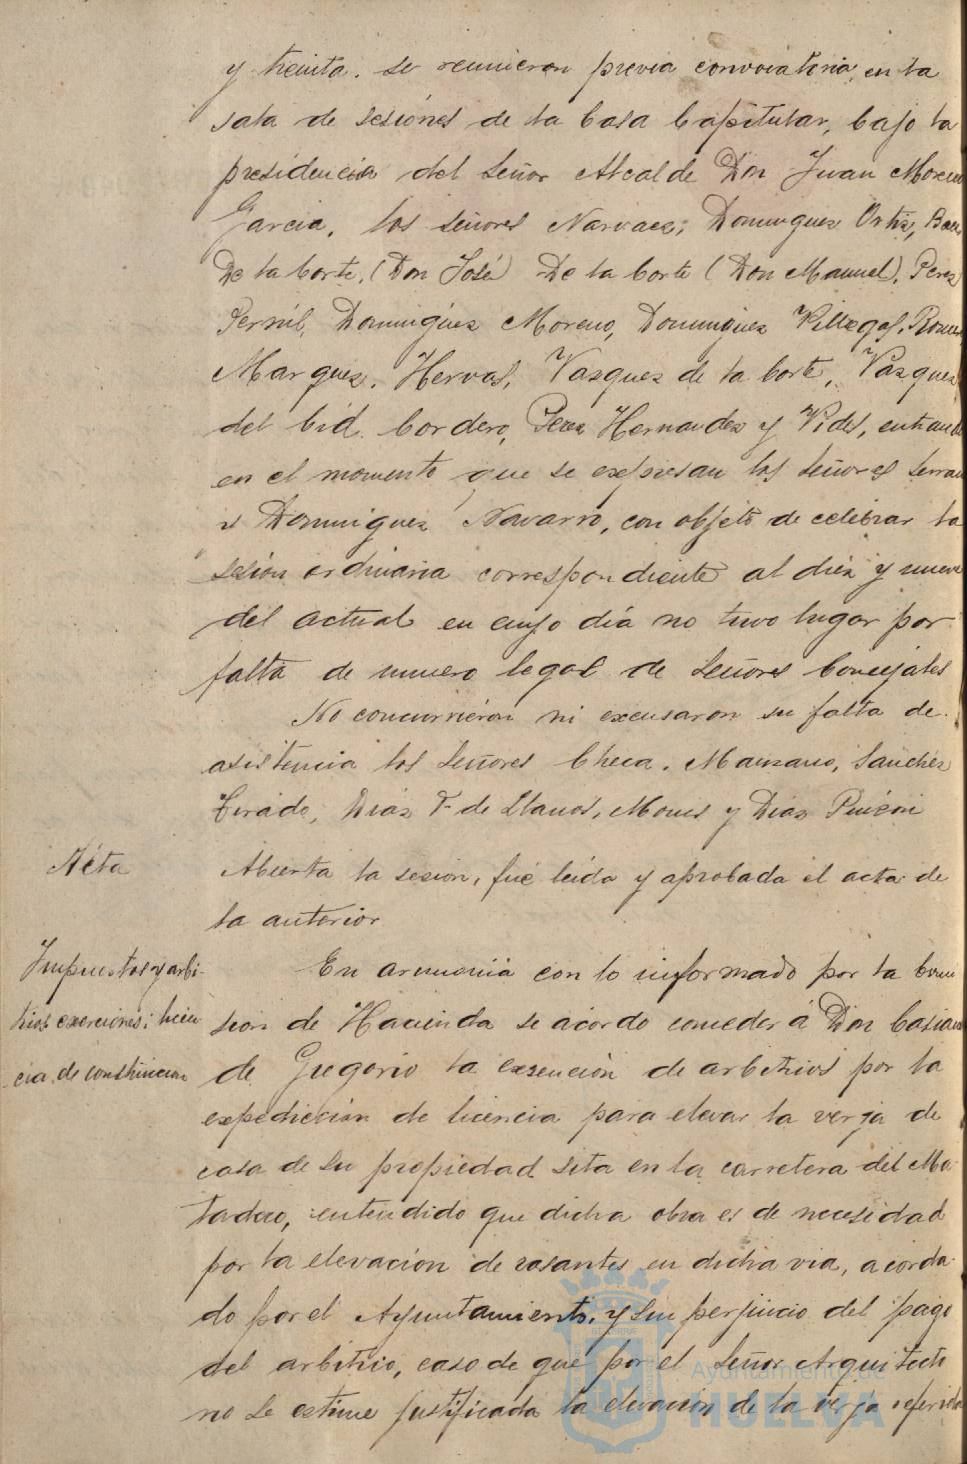 y treinta. se reunieron previa convocatoria, en la
sala de sesiónes de la Casa Capitular, bajo la
presidencia del Señor Alcalde Don Juan Moreno
Garcia, los señores Narvaez; Dominguez Ortiz,
De la Corte, (Don José) De la Corte (Don Manuel), Perez
Pernil, Dominguez Moreno, Dominguez Villegas, Romero
Marquez, Hervas, Vazquez de la Corte, Vazquez
del Cid. Cordero, Perez Hernandez y Vides, entrando
en el momento que se expresan los Señores Serrano
y Dominguez Navarro, con objeto de celebrar la
sesión ordinaria correspondiente al diez y nueve
del actual en cuyo día no tuvo lugar por
falta de numero legal de Señores Concejales
No concurrieron ni excusaron su falta de
asistencia los Señores Checa, Manzano, Sanchez
Tirado, Díaz F. de Llanos, Mones y Diaz Pinzón
Acta
Abierta la sesion, fué leida y aprobada el acta de
la anterior
Impuestos y arbi-
trios exenciones; licen
cia de construccion
En armonia con lo informado por la Comi
sion de Hacienda se acordo conceder á Don Casiano
de Gregorio la exsención de arbitrios por la
expedición de licencia para elevar la verja de
casa de su propiedad sita en la carretera del Ma-
tadero, entendido que dicha obra es de necesidad
por la elevación de rasantes en dicha via, acorda-
do por el Ayuntamiento, y sin perjuicio del pago
del arbitrio, caso de que por el Señor Arquitecto
no se estime justificada la elevación de la verja referida
Ayuntamiento de
HUELVA